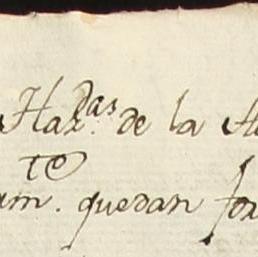 Haz.das de la
am.te quedan